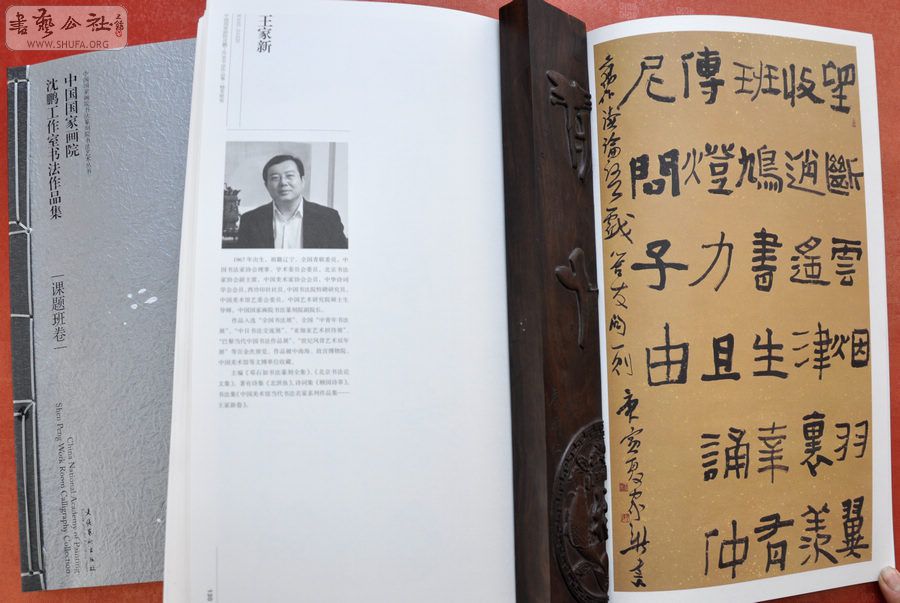 書藝公社
WWW.SHUFA.ORG
中国国家画院书法篆刻院书法艺术丛书
中国国家画院
沈鹏工作室书法作品集
课题班卷
China National Academy of Painting
Shen Peng Work Room Calligraphy Collection
文化艺术出版社
王家新
1967年出生，祖籍辽宁。全国青联委员，中
国书法家协会理事、学术委员会委员，北京书法
家协会副主席，中国美术家协会会员，中华诗词
学会会员，西泠印社社员，中国书法院特聘研究员，
中国美术馆艺委会委员，中国艺术研究院硕士生
导师，中国国家画院书法篆刻院副院长。
作品入选“全国书法展”、全国“中青年书法
展”、“中日书法交流展”、
“巴黎当代中国书法作品展”、“世纪风骨艺术双年
展”等百余次展览，作品被中南海、故宫博物院、
中国美术馆等文博单位收藏。
主编《邓石如书法篆刻全集》、《北京书法论
文集》，著有诗集《北冥鱼》、诗词集《倾园诗草》、
书法集《中国美术馆当代书法名家系列作品集——
王家新卷》。
120
望斷雲烟羽翼
收逍遥津裏羡
班鳩書生業有
傳燈力且誦仲
尼問子由
作讀論語戲答友問一則 庚寅夏家新書